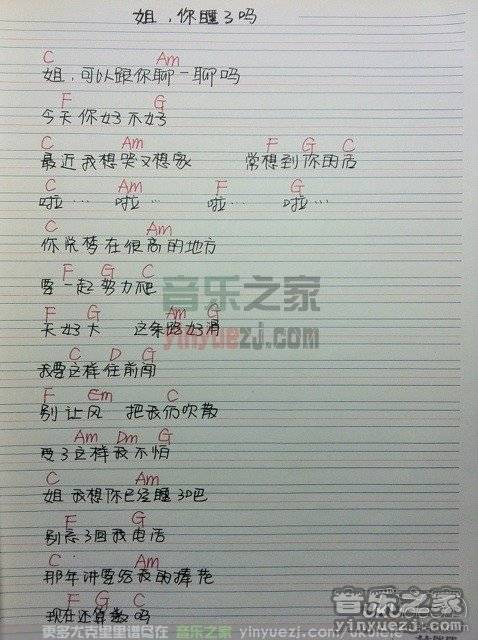 姐，你睡了吗
C Am
姐，可以跟你聊一聊吗
F G
今天你好不好
C Am F G C
最近我想哭又想家 常想到你的话
C Am F G
啦… 啦… 啦… 啦…
C Am
你说梦在很高的地方
F G C
要一起努力爬
音乐之家
F G Am G
天好大 这条路好滑
yinyuezj.com
C D G
我要这样往前闯
F Em C
别让风 把我们吹散
Am Dm G
了这样我不怕
C Am
姐我想你已经睡了吧
F G
别忘了回我电话
C Am
那年讲要给我的捧花
F G C
现在还算数吗
音乐之家
yinyuezj.com
更多尤克里里谱尽在 音乐之家 yinyuezj.com